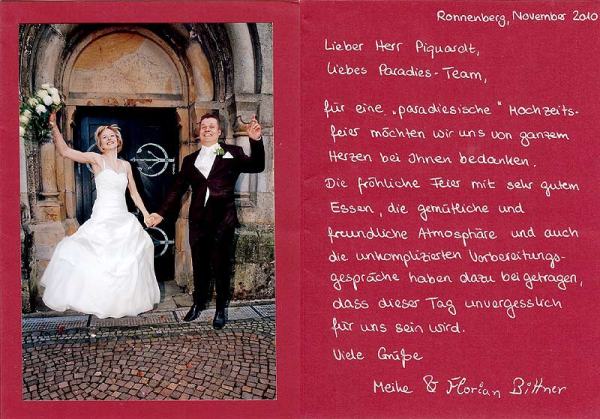 Ronnenberg, November 2010
Lieber Herr Piquardt,
liebes Paradies-Team,
für eine „paradiesische“ Hochzeits-
feier möchten wir uns von ganzem
Herzen bei Ihnen bedanken.
Die fröhliche Feier mit sehr gutem
Essen, die gemütliche und
freundliche Atmosphäre und auch
die unkomplizierten Vorbereitungs-
gespräche haben dazu beigetragen,
dass dieser Tag unvergesslich
für uns sein wird.
Viele Grüße
Meike & Florian Bittner